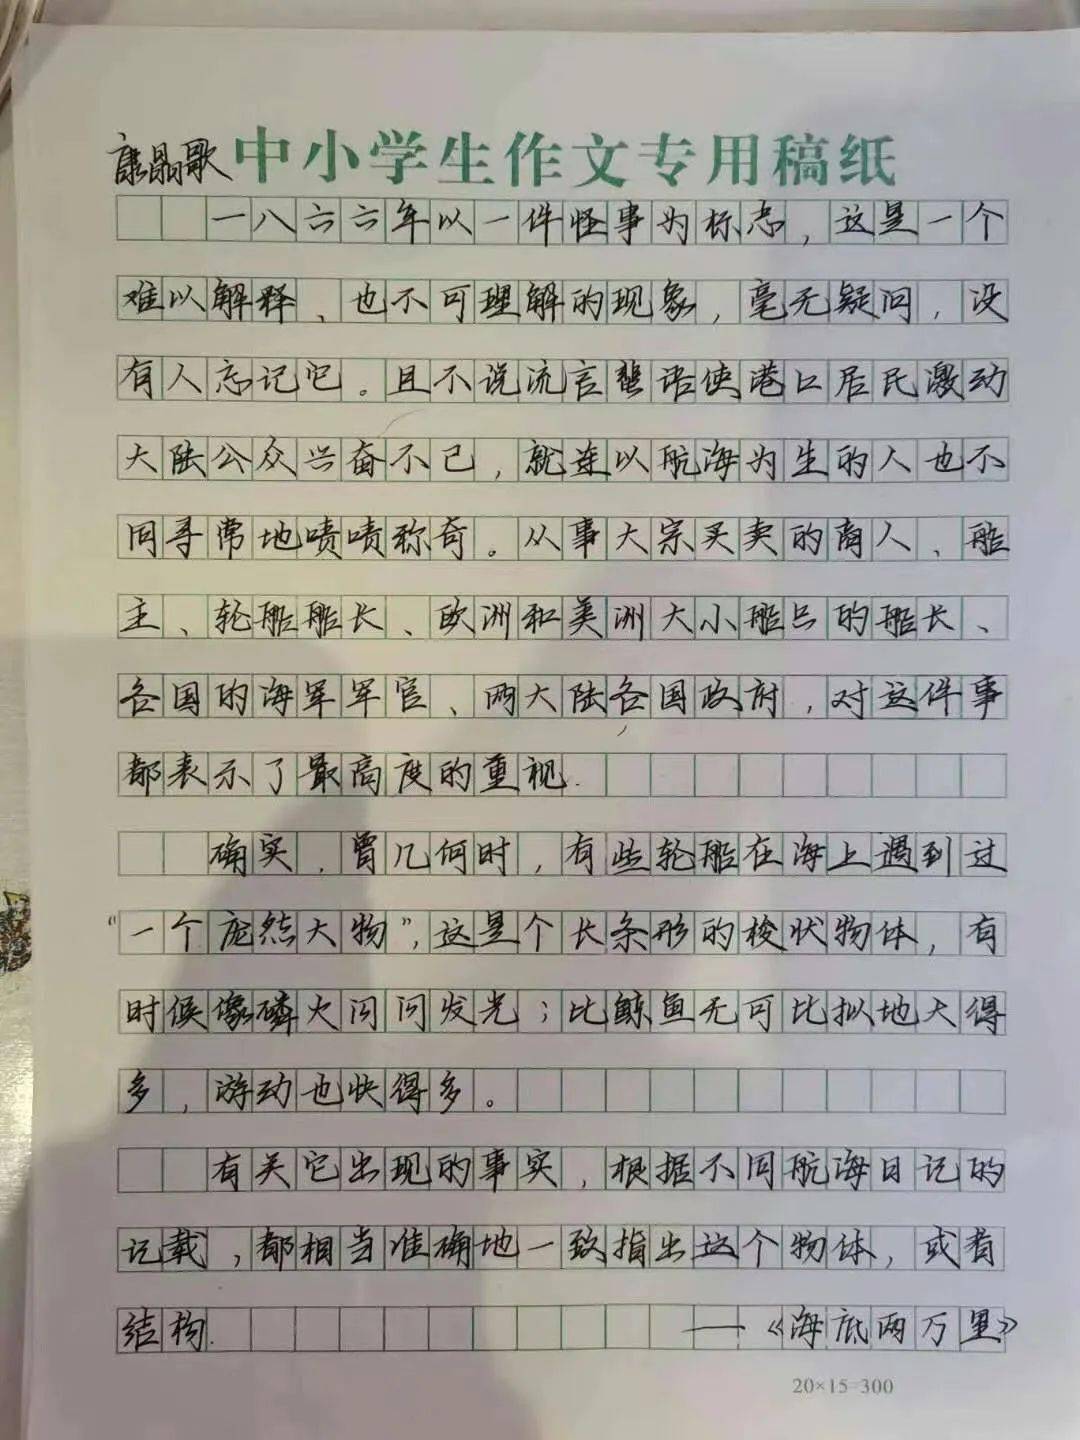 康晶歌 中小学生作文专用稿纸
一八六六年以一件怪事为标志，这是一个
难以解释、也不可理解的现象，毫无疑问，没
有人忘记它。且不说流言蜚语使港口居民激动
大陆公众兴奋不已，就连以航海为生的人也不
同寻常地啧啧称奇。从事大宗买卖的商人、船
主、轮船船长、欧洲和美洲大小船只的船长、
各国的海军军官、两大陆各国政府，对这件事
都表示了最高度的重视.
确实，曾几何时，有些轮船在海上遇到过
“一个庞然大物”，这是个长条形的梭状物体，有
时候像磷火闪闪发光；比鲸鱼无可比拟地大得
多，游动也快得多。
有关它出现的事实，根据不同航海日记的
记载，都相当准确地一致指出这个物体，或者
结构. ——《海底两万里》
20×15=300